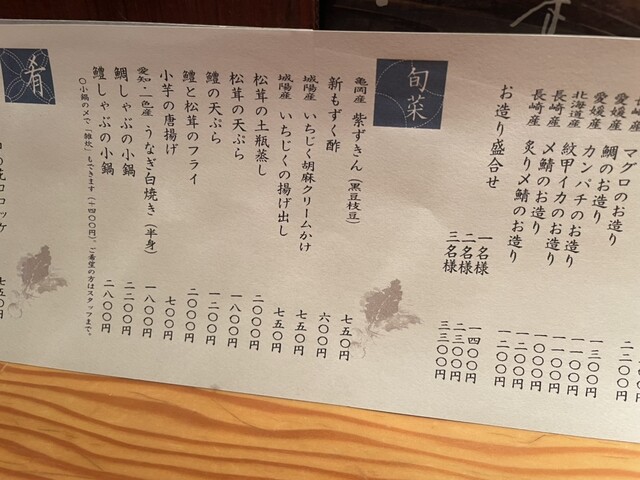 マグロのお造り
愛媛産 鯛のお造り 一三〇〇円
愛媛産 カンパチのお造り 一一〇〇円
北海道産 紋甲イカのお造り 一一〇〇円
長崎産 〆鯖のお造り 一〇〇〇円
長崎産 炙り〆鯖のお造り 一二〇〇円
お造り盛合せ 一二〇〇円
一名様 一四〇〇円
二名様 二三〇〇円
三名様 三三〇〇円
旬菜
亀岡産 紫ずきん（黒豆枝豆） 七五〇円
新もずく酢 六〇〇円
城陽産 いちじく胡麻クリームかけ 七五〇円
城陽産 いちじくの揚げ出し 七五〇円
松茸の土瓶蒸し 二〇〇〇円
松茸の天ぷら 一八〇〇円
鱧の天ぷら 一二〇〇円
鱧と松茸のフライ 二〇〇〇円
小芋の唐揚げ 七〇〇円
愛知・一色産 うなぎ白焼き（半身） 一八〇〇円
鯛しゃぶの小鍋 二二〇〇円
鱧しゃぶの小鍋 二八〇〇円
〇小鍋の〆で「雑炊」もできます（＋四〇〇円）。ご希望の方はスタッフまで。
肴
コロッケ 七五〇円